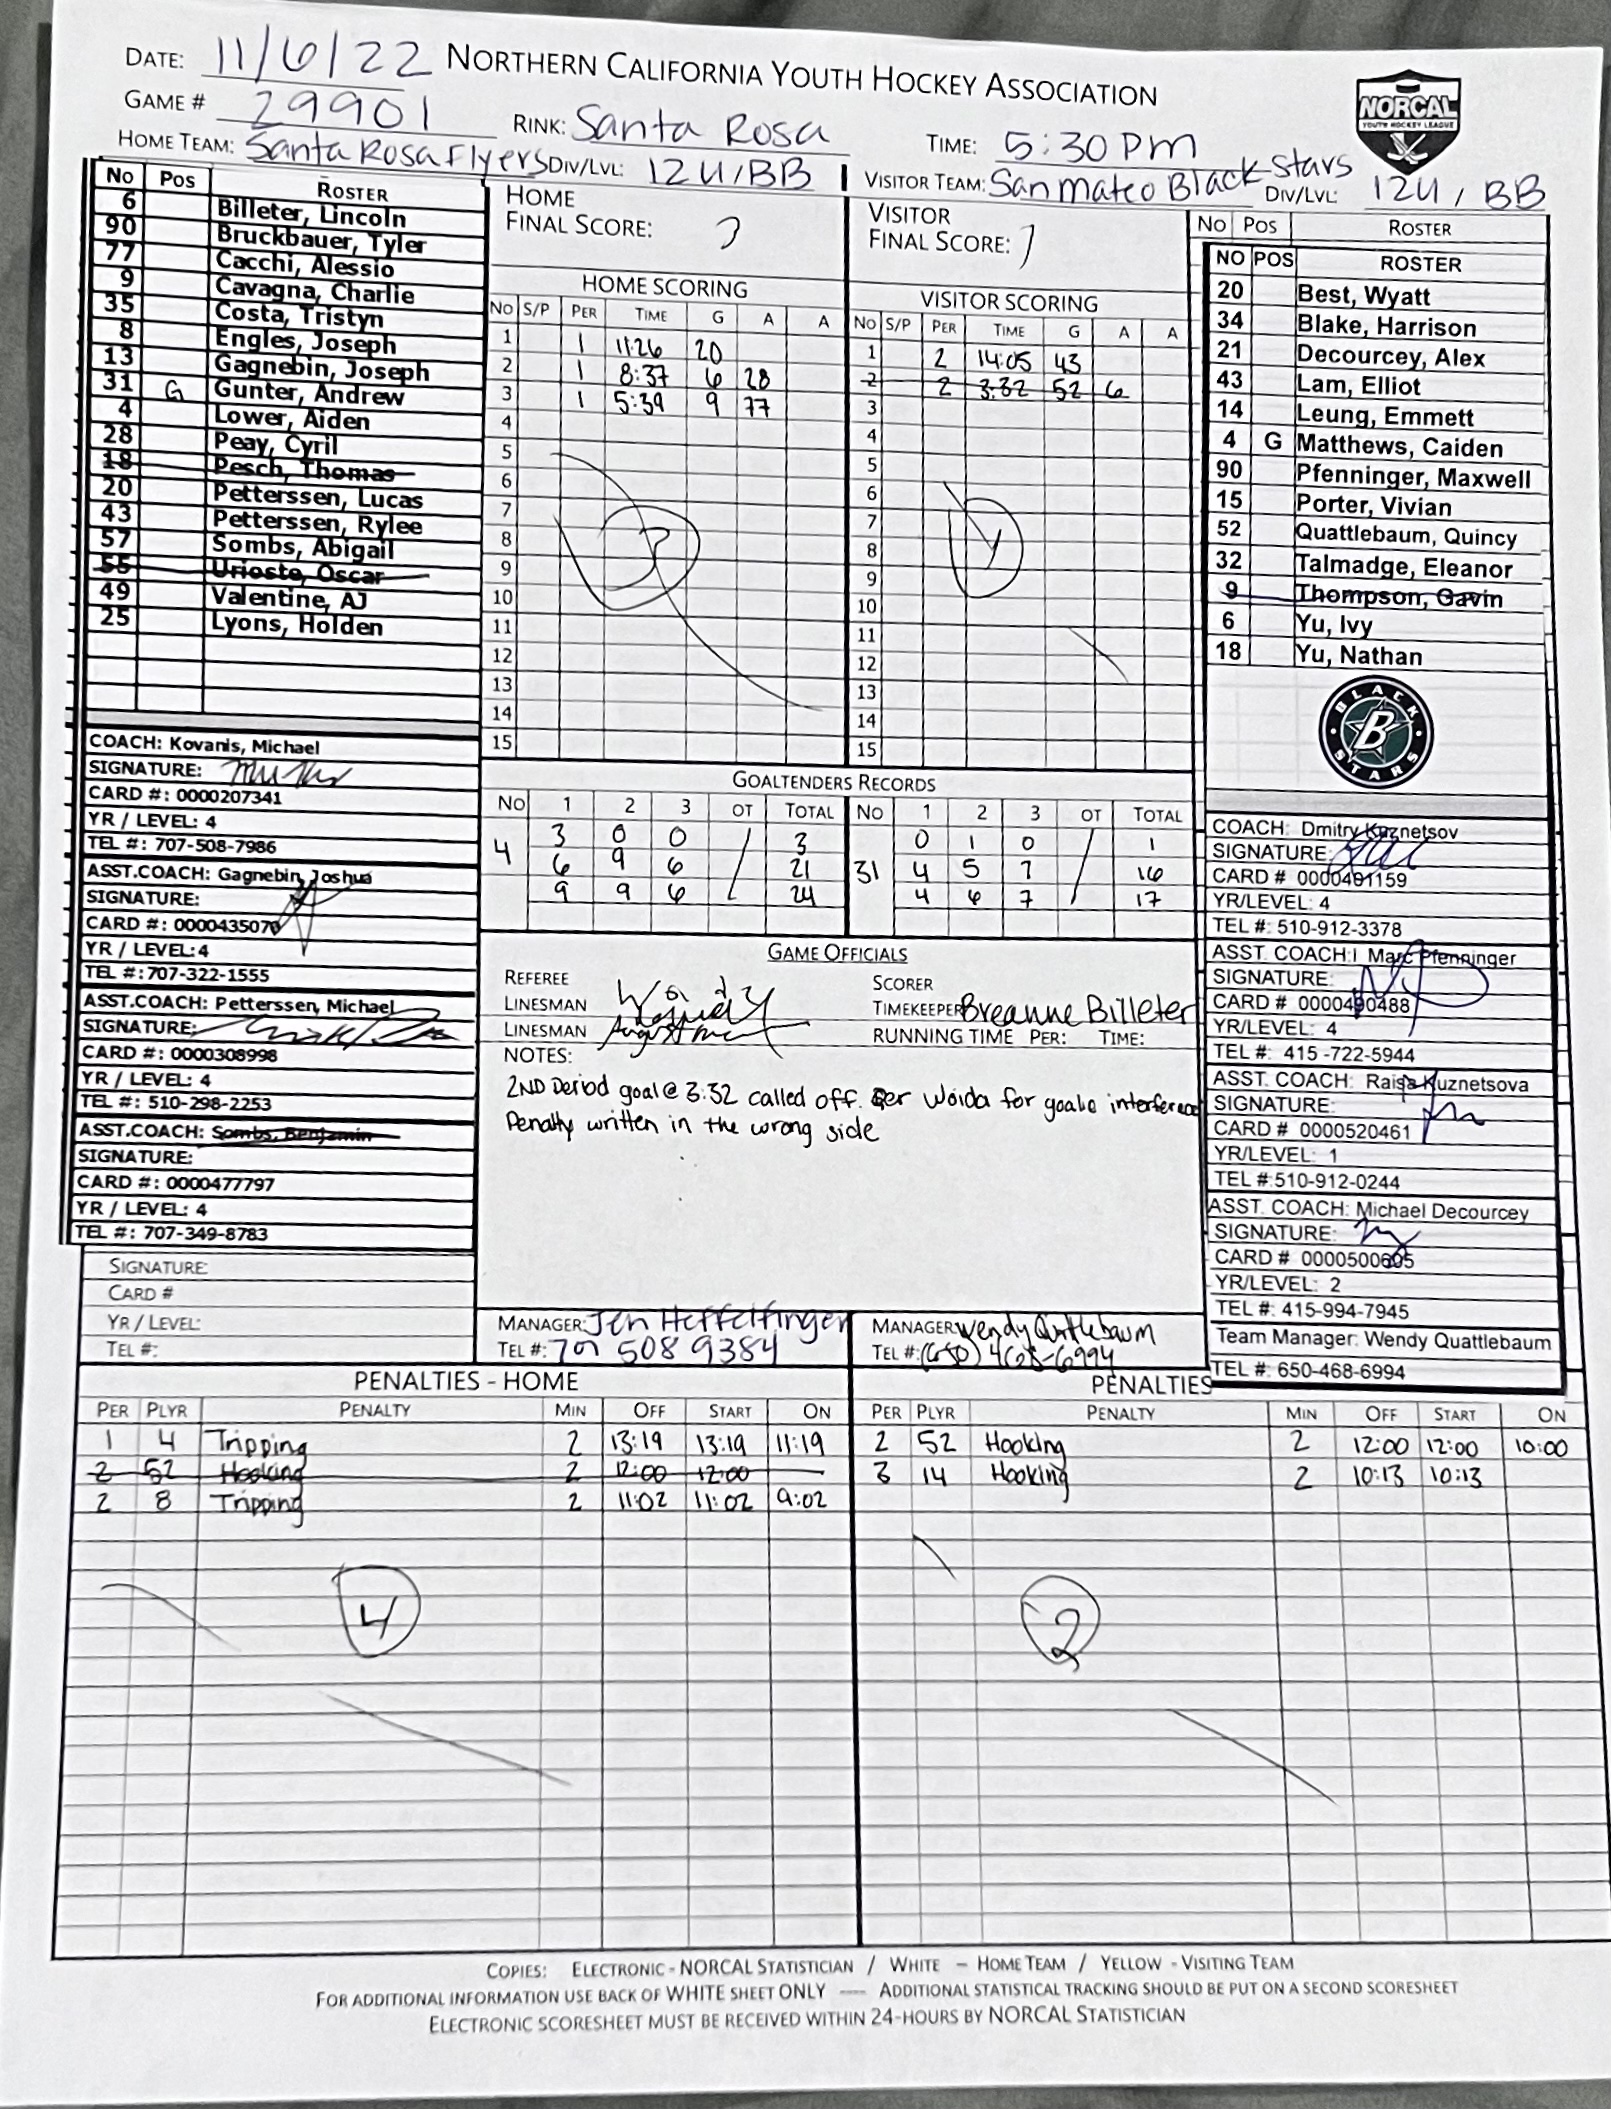 DATE: 11/6/22 NORTHERN CALIFORNIA YOUTH HOCKEY ASSOCIATION
NORCAL
YOUTH HOCKEY LEAGUE
GAME # 29901 RINK: Santa Rosa TIME: 5:30 PM
HOME TEAM: Santa Rosa Flyers DIV/LVL: 12U/BB VISITOR TEAM: San Mateo Black Stars DIV/LVL: 12U/BB
No Pos ROSTER
6 Billeter, Lincoln
90 Bruckbauer, Tyler
77 Cacchi, Alessio
9 Cavagna, Charlie
35 Costa, Tristyn
8 Engles, Joseph
13 Gagnebin, Joseph
31 G Gunter, Andrew
4 Lower, Aiden
28 Peay, Cyril
18 Pesch, Thomas
20 Petterssen, Lucas
43 Petterssen, Rylee
57 Sombs, Abigail
55 Urioste, Oscar
49 Valentine, AJ
25 Lyons, Holden
COACH: Kovanis, Michael
SIGNATURE:
CARD #: 0000207341
YR / LEVEL: 4
TEL #: 707-508-7986
ASST.COACH: Gagnebin, Joshua
SIGNATURE:
CARD #: 0000435070
YR / LEVEL: 4
TEL #: 707-322-1555
ASST.COACH: Petterssen, Michael
SIGNATURE:
CARD #: 0000308998
YR / LEVEL: 4
TEL #: 510-298-2253
ASST.COACH: Sombs, Benjamin
SIGNATURE:
CARD #: 0000477797
YR / LEVEL: 4
TEL #: 707-349-8783
SIGNATURE:
CARD #
YR / LEVEL:
TEL #:
HOME
FINAL SCORE: 3
HOME SCORING
No S/P PER TIME G A A
1 1 11:26 20
2 1 8:37 6 28
3 1 5:39 9 77
4
5
6
7
8
9
10
11
12
13
14
15
3
VISITOR
FINAL SCORE: 1
VISITOR SCORING
No S/P PER TIME G A A
1 2 14:05 43
2 2 3:32 52 6
3
4
5
6
7
8
9
10
11
12
13
14
15
1
GOALTENDERS RECORDS
NO 1 2 3 OT TOTAL NO 1 2 3 OT TOTAL
3 0 0 / 3 0 1 0 / 1
4 6 9 6 / 21 31 4 5 7 / 16
9 9 6 / 24 4 6 7 / 17
GAME OFFICIALS
REFEREE SCORER
LINESMAN TIMEKEEPER Breanne Billeter
LINESMAN RUNNING TIME PER: TIME:
NOTES:
2ND Period goal @ 3:32 called off. Per Woida for goalie interference
Penalty written in the wrong side
MANAGER: Jen Heffelfinger MANAGER: Wendy Quattlebaum
TEL #: 707 508 9384 TEL #: (650) 468-6994
No Pos ROSTER
NO POS ROSTER
20 Best, Wyatt
34 Blake, Harrison
21 Decourcey, Alex
43 Lam, Elliot
14 Leung, Emmett
4 G Matthews, Caiden
90 Pfenninger, Maxwell
15 Porter, Vivian
52 Quattlebaum, Quincy
32 Talmadge, Eleanor
9 Thompson, Gavin
6 Yu, Ivy
18 Yu, Nathan
BLACK
B
STARS
COACH: Dmitry Kuznetsov
SIGNATURE:
CARD # 0000461159
YR/LEVEL: 4
TEL #: 510-912-3378
ASST. COACH: Marc Pfenninger
SIGNATURE:
CARD # 0000490488
YR/LEVEL: 4
TEL #: 415 -722-5944
ASST. COACH: Raisa Kuznetsova
SIGNATURE:
CARD # 0000520461
YR/LEVEL: 1
TEL #:510-912-0244
ASST. COACH: Michael Decourcey
SIGNATURE:
CARD # 0000500605
YR/LEVEL: 2
TEL #: 415-994-7945
Team Manager: Wendy Quattlebaum
TEL #: 650-468-6994
PENALTIES - HOME
PER PLYR PENALTY MIN OFF START ON
1 4 Tripping 2 13:19 13:19 11:19
2 52 Hooking 2 12:00 12:00
2 8 Tripping 2 11:02 11:02 9:02
4
PENALTIES
PER PLYR PENALTY MIN OFF START ON
2 52 Hooking 2 12:00 12:00 10:00
3 14 Hooking 2 10:13 10:13
2
COPIES: ELECTRONIC - NORCAL STATISTICIAN / WHITE – HOME TEAM / YELLOW - VISITING TEAM
FOR ADDITIONAL INFORMATION USE BACK OF WHITE SHEET ONLY ---- ADDITIONAL STATISTICAL TRACKING SHOULD BE PUT ON A SECOND SCORESHEET
ELECTRONIC SCORESHEET MUST BE RECEIVED WITHIN 24-HOURS BY NORCAL STATISTICIAN